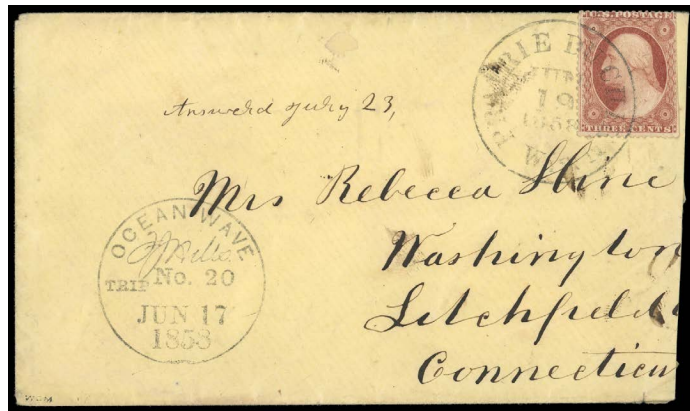 U.S. POSTAGE
THREE CENTS
PRAIRIE DU CHIEN
JUN
19
1858
WIS.
Answered July 23,
Mrs Rebecca Hine
Washington
Litchfield
Connecticut
OCEAN WAVE
TRIP No. 20
JUN 17
1858
WGM